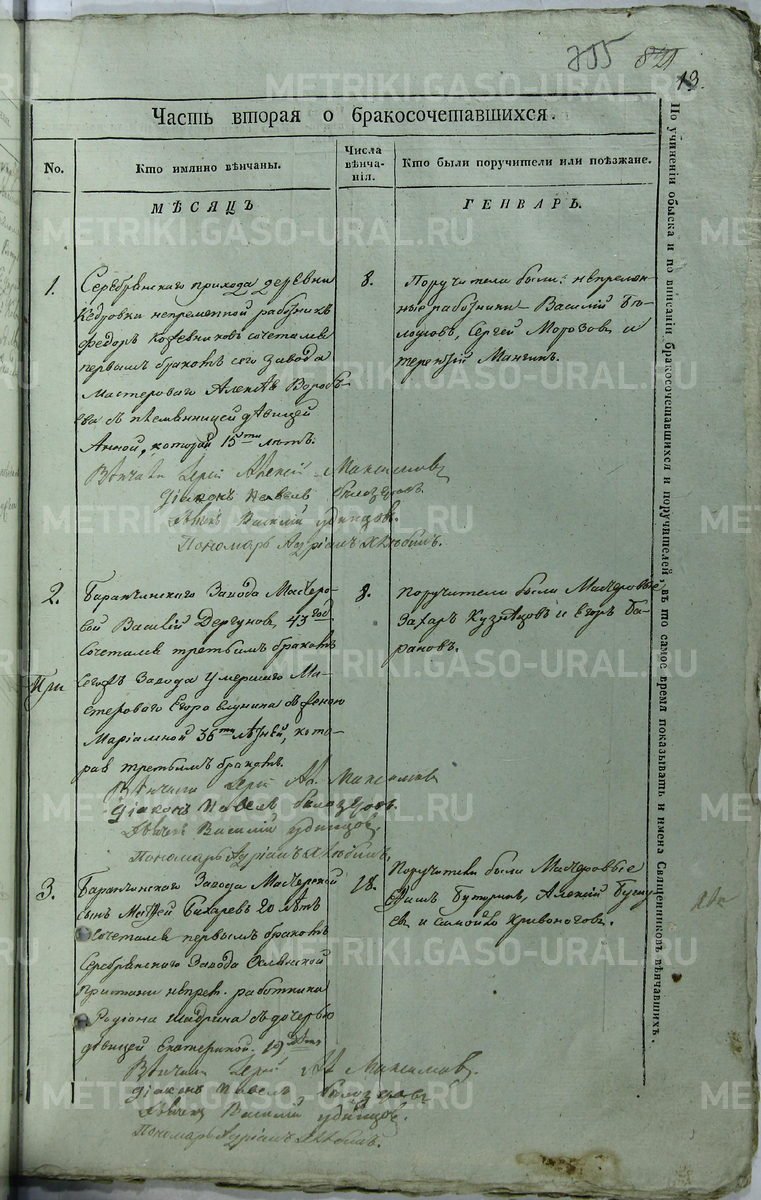 355 821
13.
Часть вторая о бракосочетавшихся.
No.
Кто имянно вѣнчаны.
Числа вѣнча-
нія.
Кто были поручители или поѣзжане.
МѢСЯЦЪ
ГЕНВАРЬ.
1.
Серебрянскаго прихода деревни
Кедровки непременной работникъ
Федоръ Кожевниковъ сочетался
первымъ бракомъ сего завода
мастероваго Алексѣя Воробь-
ева съ племянницей дѣвицей
Анной, которой 15ти лѣтъ.
Вѣнчали Іерей Алексій Максимовъ
Діаконъ Павелъ Белозеровъ
Дьячекъ Василій Удинцовъ.
Пономарь Адріанъ Хлюбимъ.
8.
Поручители были: непремен-
ные работники Василій
Сергей Морозовъ и
терентій
2.
Баранчинскаго Завода Мастеро-
вой Василій Дергуновъ 43 год
Сочетался третьимъ бракомъ
Завода умершаго Ма-
стероваго Егора съ женою
Маріамной 36ти лѣтней, кото-
рая третьимъ бракомъ.
Вѣнчали Іерей Ал. Максимовъ
Діаконъ Павелъ Белозеровъ
Дьячекъ Василій Удинцовъ
Пономарь Адріанъ Хлюбимъ.
8.
поручители были Мастеровые
Захаръ Кузнѣцовъ и Егоръ Ба-
рановъ.
При
3.
Баранчинскаго Завода Мастерской
сынъ Матфей Бихаревъ 20 лѣтъ
Сочетался первымъ бракомъ
Серебрянскаго Завода
Пристани непрем. работника
Родіона Шадрина съ дочерью
дѣвицей Екатериной. 19 лѣтъ
Вѣнчали Іерей Ал. Максимовъ.
Діаконъ Павелъ Белозеровъ
Дьячекъ Василій Удинцовъ.
Пономарь Адріанъ Хлюбимъ.
18.
Поручители были Мастеровые
Бутаринъ, Алексій
и Самойло Кривоноговъ.
По учиненіи обыска и по вписаніи бракосочетавшихся и поручителей, въ то самое время показывать и имена Священниковъ вѣнчавшихъ.
METRIKI.GASO-URAL.RU